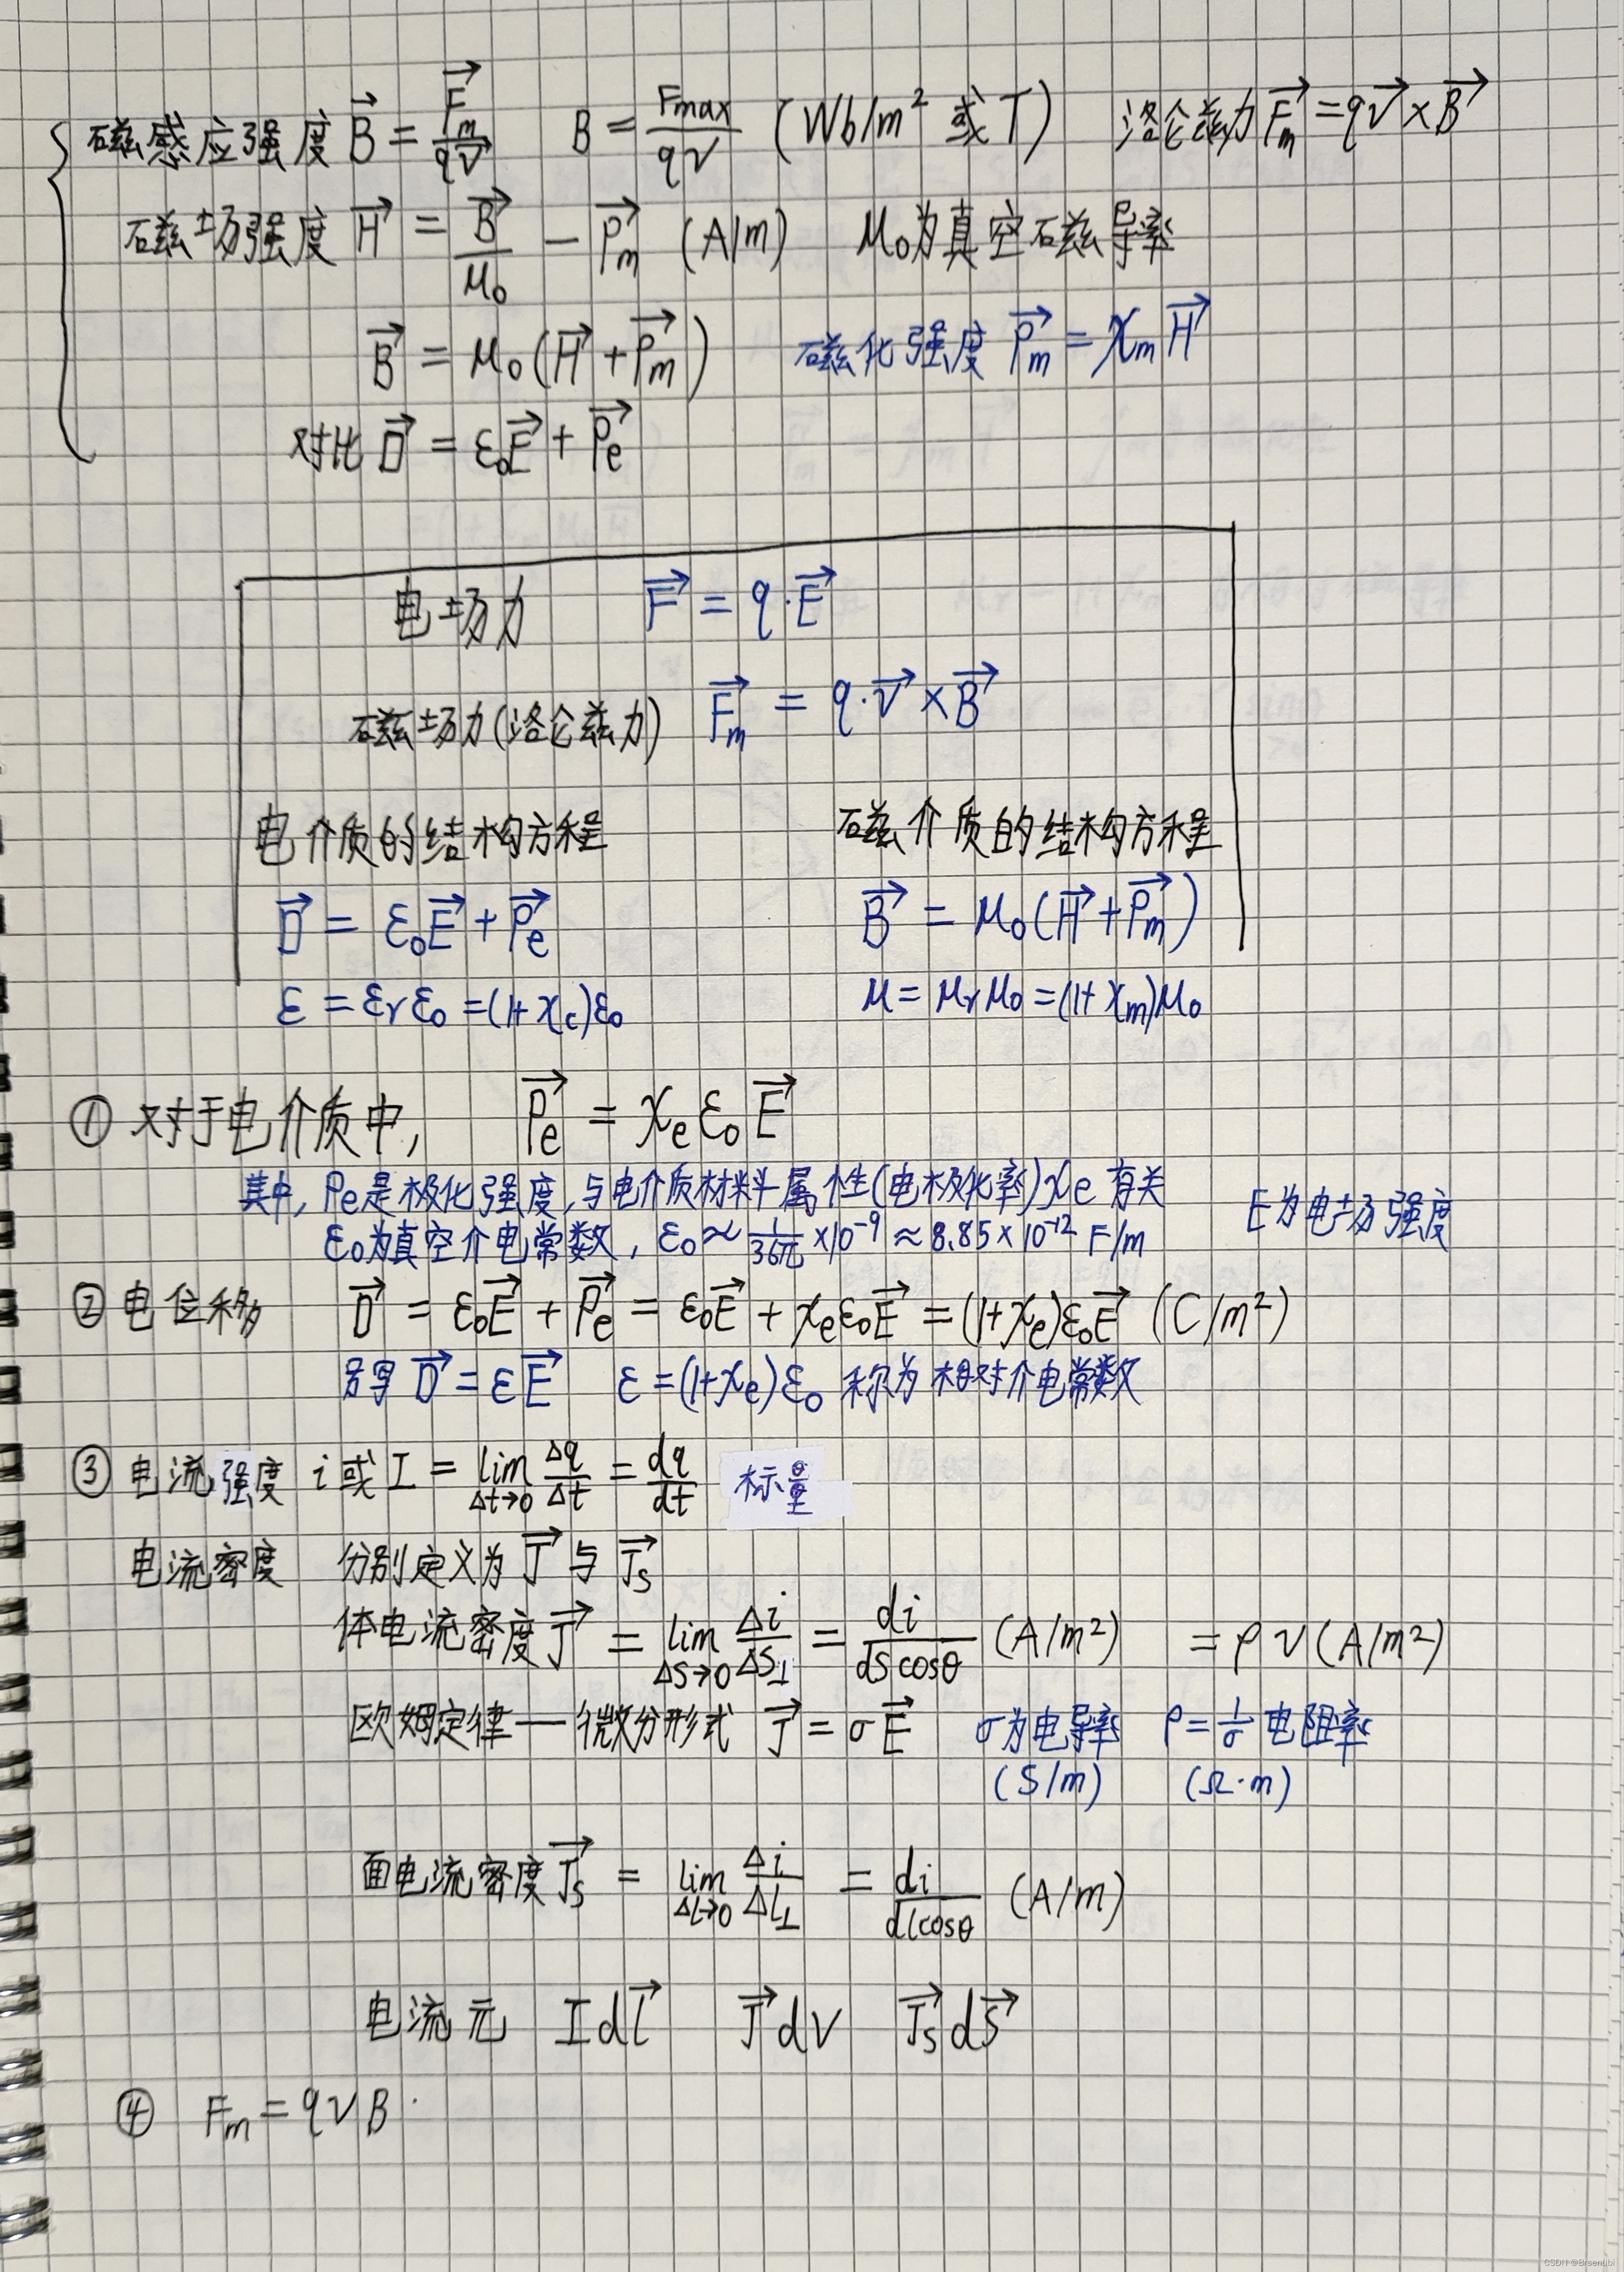 磁感应强度 B⃗ = F⃗m / qv⃗   B = Fmax / qv (Wb/m² 或 T)   洛伦兹力 F⃗m = qv⃗ × B⃗
磁场强度 H⃗ = B⃗ / μ₀ − P⃗m (A/m)   μ₀为真空磁导率
B⃗ = μ₀(H⃗ + P⃗m)   磁化强度 P⃗m = χm H⃗
对比 D⃗ = ε₀E⃗ + P⃗e
电场力   F⃗ = q·E⃗
磁场力(洛伦兹力)   F⃗m = q·v⃗ × B⃗
电介质的结构方程   磁介质的结构方程
D⃗ = ε₀E⃗ + P⃗e   B⃗ = μ₀(H⃗ + P⃗m)
ε = εrε₀ = (1+χc)ε₀   μ = μrμ₀ = (1+χm)μ₀
① 对于电介质中,   P⃗e = χeε₀E⃗
其中, Pe是极化强度, 与电介质材料属性(电极化率)χe 有关   E为电场强度
ε₀为真空介电常数, ε₀ ≈ 1/36π × 10⁻⁹ ≈ 8.85 × 10⁻¹² F/m
② 电位移   D⃗ = ε₀E⃗ + P⃗e = ε₀E⃗ + χeε₀E⃗ = (1+χe)ε₀E⃗ (C/m²)
另写 D⃗ = εE⃗   ε = (1+χe)ε₀ 称为相对介电常数
③ 电流强度 i 或 I = lim Δt→0 Δq/Δt = dq/dt   标量
电流密度   分别定义为 J⃗ 与 J⃗s
体电流密度 J⃗ = lim ΔS→0 Δi/ΔS⊥ = di/dS cosθ (A/m²)   = ρv (A/m²)
欧姆定律—微分形式 J⃗ = σE⃗   σ为电导率   ρ = 1/σ 电阻率
(S/m)   (Ω·m)
面电流密度 J⃗s = lim Δl→0 Δi/Δl⊥ = di/dlcosθ (A/m)
电流元   Idl⃗   J⃗dV   J⃗s dS⃗
④ Fm = qvB
CSDN @Brsentibi